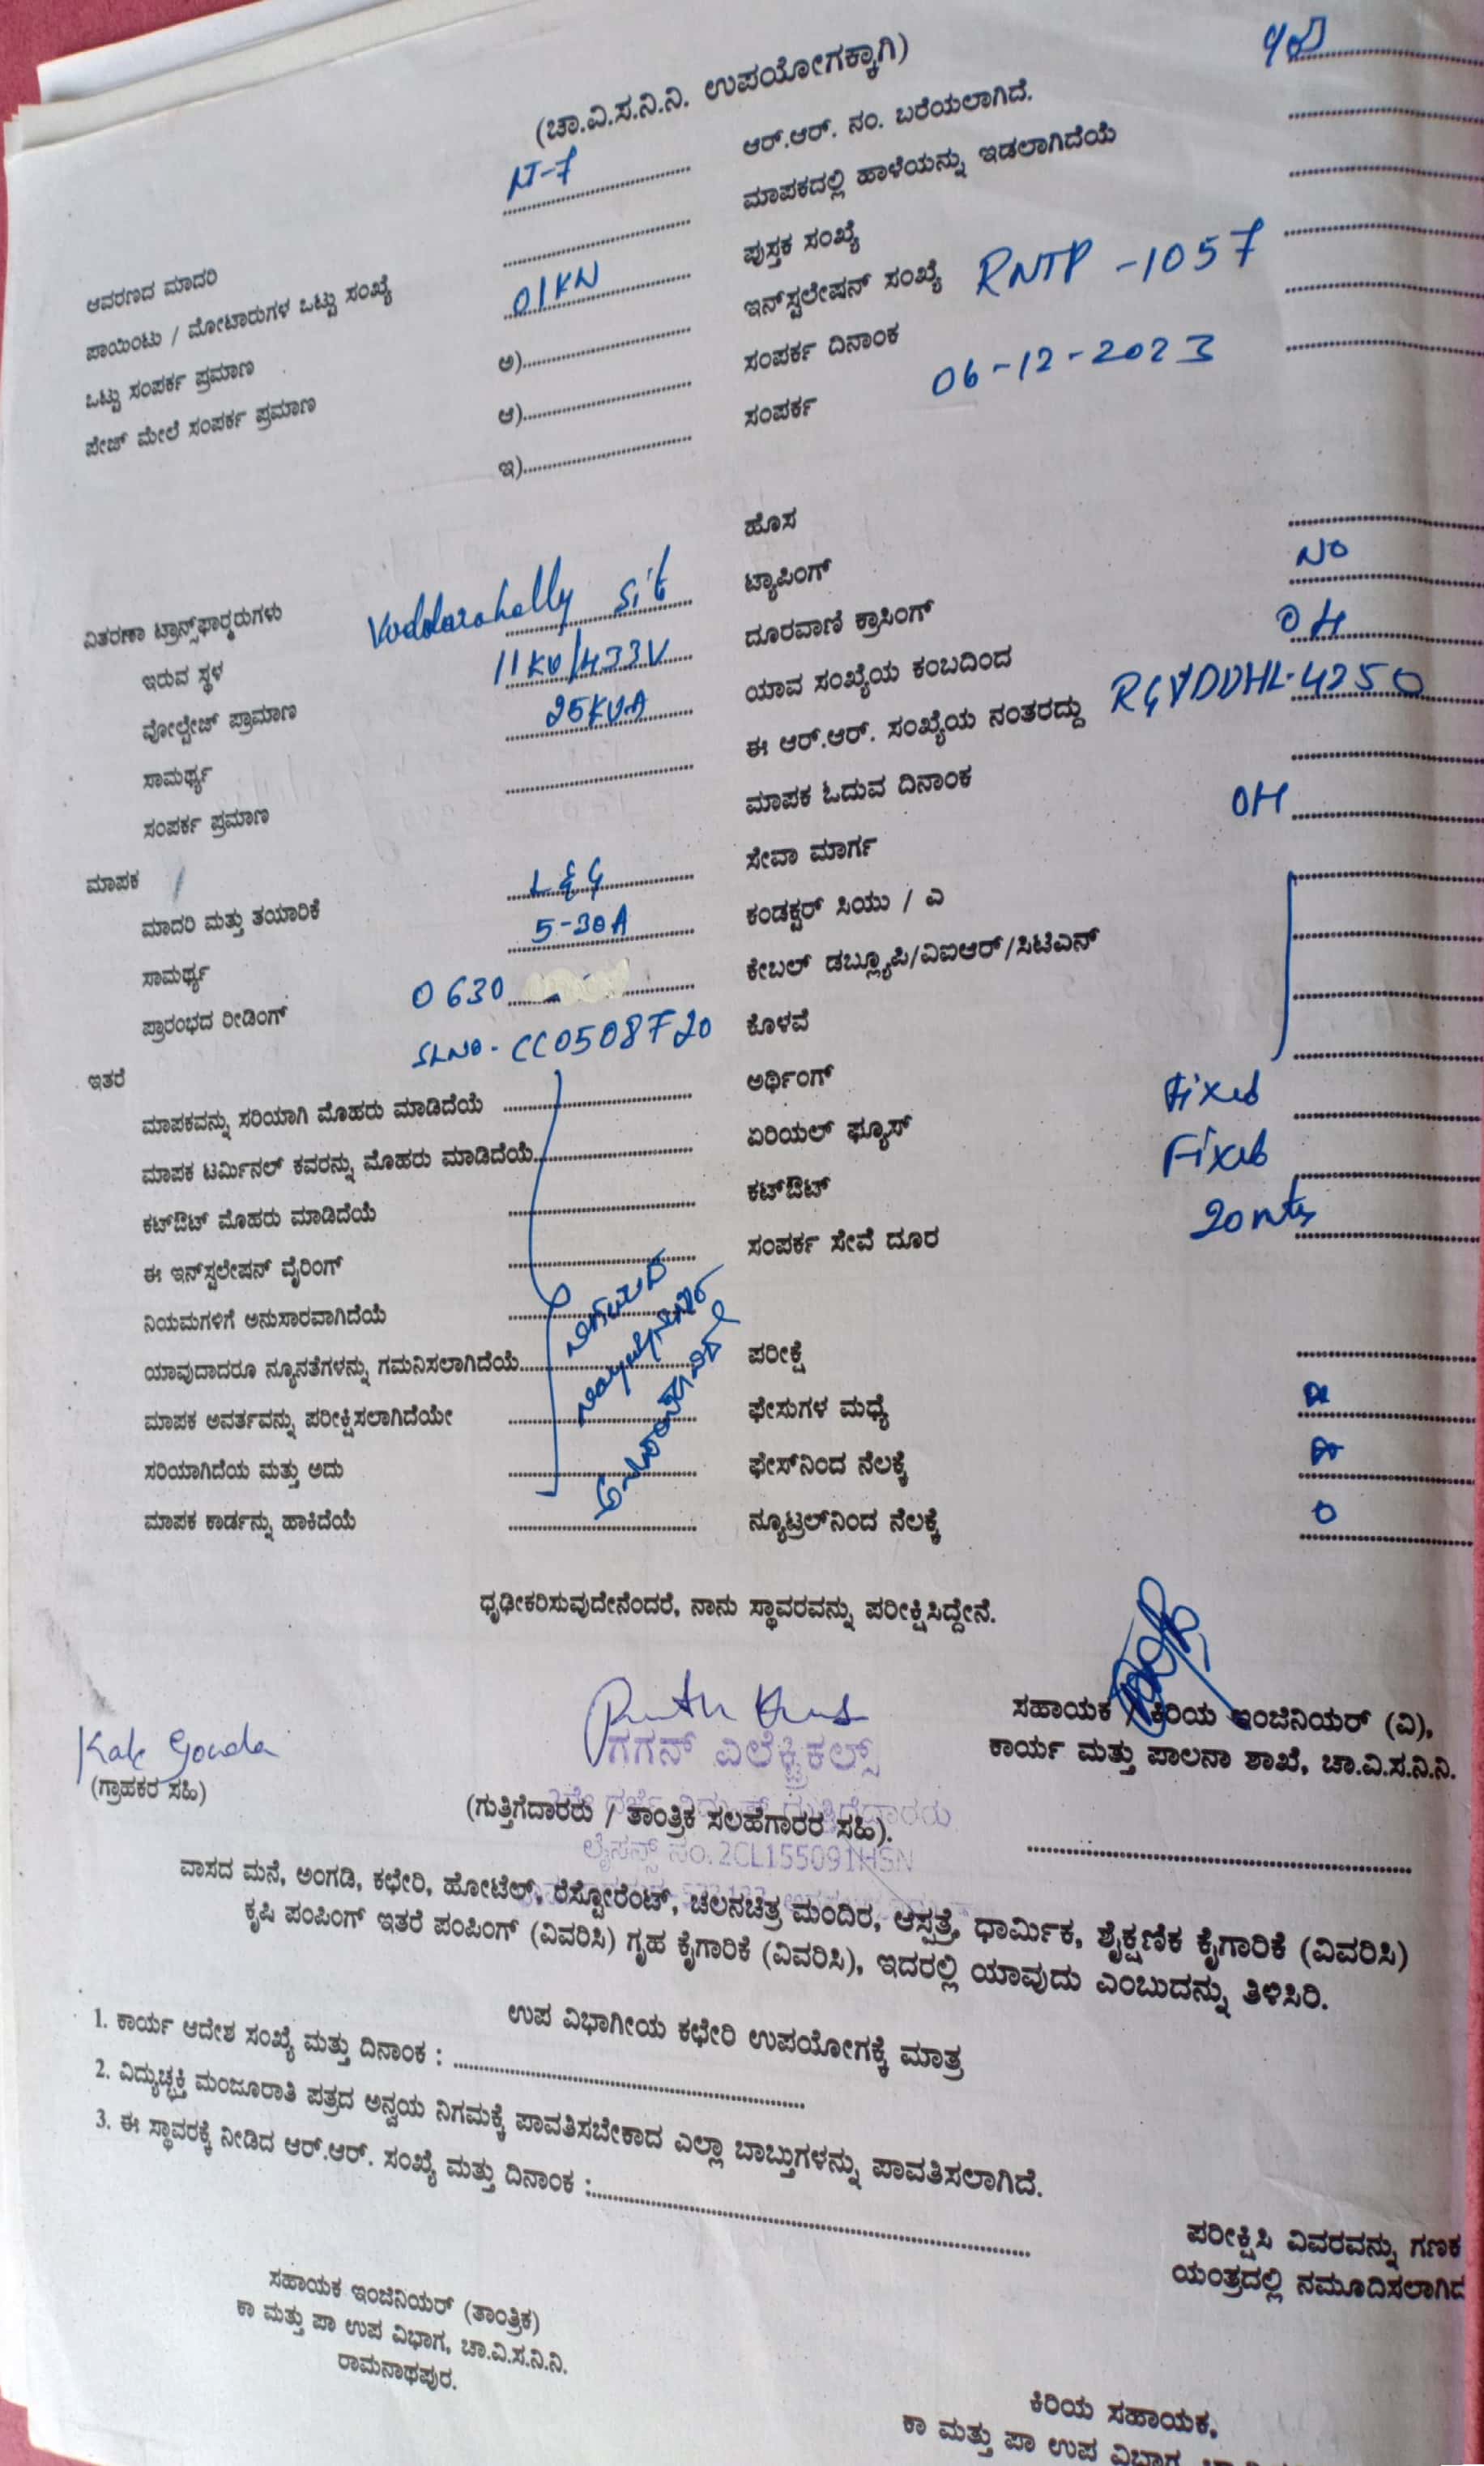 (ಚಾ.ವಿ.ಸ.ನಿ.ನಿ. ಉಪಯೋಗಕ್ಕಾಗಿ)
ಆವರಣದ ಮಾದರಿ
ಪಾಯಿಂಟು / ಮೋಟಾರುಗಳ ಒಟ್ಟು ಸಂಖ್ಯೆ
ಒಟ್ಟು ಸಂಪರ್ಕ ಪ್ರಮಾಣ 01KW
ಪೇಜ್ ಮೇಲೆ ಸಂಪರ್ಕ ಪ್ರಮಾಣ ಅ)
ಆ)
ಇ)
ಆರ್.ಆರ್. ನಂ. ಬರೆಯಲಾಗಿದೆ.
ಮಾಪಕದಲ್ಲಿ ಹಾಳೆಯನ್ನು ಇಡಲಾಗಿದೆಯೆ
ಪುಸ್ತಕ ಸಂಖ್ಯೆ
ಇನ್‌ಸ್ಟಲೇಷನ್ ಸಂಖ್ಯೆ RNTP -1057
ಸಂಪರ್ಕ ದಿನಾಂಕ 06-12-2023
ಸಂಪರ್ಕ
ವಿತರಣಾ ಟ್ರಾನ್ಸ್‌ಫಾರ್‍ಮರುಗಳು
ಇರುವ ಸ್ಥಳ Voddarahally
ವೋಲ್ಟೇಜ್ ಪ್ರಾಮಾಣ 11KV/433V
ಸಾಮರ್ಥ್ಯ 25KVA
ಸಂಪರ್ಕ ಪ್ರಮಾಣ
ಹೊಸ
ಟ್ಯಾಪಿಂಗ್
ದೂರವಾಣಿ ಕ್ರಾಸಿಂಗ್ NO
ಯಾವ ಸಂಖ್ಯೆಯ ಕಂಬದಿಂದ OH
ಈ ಆರ್.ಆರ್. ಸಂಖ್ಯೆಯ ನಂತರದ್ದು
ಮಾಪಕ ಓದುವ ದಿನಾಂಕ
ಸೇವಾ ಮಾರ್ಗ OH
ಕಂಡಕ್ಟರ್ ಸಿಯು / ಎ
ಕೇಬಲ್ ಡಬ್ಲ್ಯೂಪಿ/ವಿಐಆರ್/ಸಿಟಿಎನ್
ಕೊಳವೆ
ಅರ್ಥಿಂಗ್
ಏರಿಯಲ್ ಫ್ಯೂಸ್ Fixed
ಕಟ್‌ಔಟ್ Fixed
ಸಂಪರ್ಕ ಸೇವೆ ದೂರ 20mts
ಮಾಪಕ
ಮಾದರಿ ಮತ್ತು ತಯಾರಿಕೆ L&G
ಸಾಮರ್ಥ್ಯ 5-30A
ಪ್ರಾರಂಭದ ರೀಡಿಂಗ್ 0630
SLNO- CC0508720
ಇತರೆ
ಮಾಪಕವನ್ನು ಸರಿಯಾಗಿ ಮೊಹರು ಮಾಡಿದೆಯೆ
ಮಾಪಕ ಟರ್ಮಿನಲ್ ಕವರನ್ನು ಮೊಹರು ಮಾಡಿದೆಯೆ
ಕಟ್‌ಔಟ್ ಮೊಹರು ಮಾಡಿದೆಯೆ
ಈ ಇನ್‌ಸ್ಟಲೇಷನ್ ವೈರಿಂಗ್
ನಿಯಮಗಳಿಗೆ ಅನುಸಾರವಾಗಿದೆಯೆ
ಯಾವುದಾದರೂ ನ್ಯೂನತೆಗಳನ್ನು ಗಮನಿಸಲಾಗಿದೆಯೆ
ಮಾಪಕ ಅವರ್ತವನ್ನು ಪರೀಕ್ಷಿಸಲಾಗಿದೆಯೇ
ಸರಿಯಾಗಿದೆಯ ಮತ್ತು ಅದು
ಮಾಪಕ ಕಾರ್ಡನ್ನು ಹಾಕಿದೆಯೆ
ಪರೀಕ್ಷೆ
ಫೇಸುಗಳ ಮಧ್ಯೆ
ಫೇಸ್‌ನಿಂದ ನೆಲಕ್ಕೆ
ನ್ಯೂಟ್ರಲ್‌ನಿಂದ ನೆಲಕ್ಕೆ 0
ಧೃಢೀಕರಿಸುವುದೇನೆಂದರೆ, ನಾನು ಸ್ಥಾವರವನ್ನು ಪರೀಕ್ಷಿಸಿದ್ದೇನೆ.
Kale Gowda
(ಗ್ರಾಹಕರ ಸಹಿ)
ಗಗನ್ ಎಲೆಕ್ಟ್ರಿಕಲ್ಸ್
(ಗುತ್ತಿಗೆದಾರರು / ತಾಂತ್ರಿಕ ಸಲಹೆಗಾರರ ಸಹಿ).
ಲೈಸನ್ಸ್ ನಂ.2CL155091HSN
ಸಹಾಯಕ / ಕಿರಿಯ ಇಂಜಿನಿಯರ್ (ವಿ),
ಕಾರ್ಯ ಮತ್ತು ಪಾಲನಾ ಶಾಖೆ, ಚಾ.ವಿ.ಸ.ನಿ.ನಿ.
ವಾಸದ ಮನೆ, ಅಂಗಡಿ, ಕಛೇರಿ, ಹೋಟೆಲ್, ರೆಸ್ಟೋರೆಂಟ್, ಚಲನಚಿತ್ರ ಮಂದಿರ, ಆಸ್ಪತ್ರೆ, ಧಾರ್ಮಿಕ, ಶೈಕ್ಷಣಿಕ ಕೈಗಾರಿಕೆ (ವಿವರಿಸಿ)
ಕೃಷಿ ಪಂಪಿಂಗ್ ಇತರೆ ಪಂಪಿಂಗ್ (ವಿವರಿಸಿ) ಗೃಹ ಕೈಗಾರಿಕೆ (ವಿವರಿಸಿ), ಇದರಲ್ಲಿ ಯಾವುದು ಎಂಬುದನ್ನು ತಿಳಿಸಿರಿ.
ಉಪ ವಿಭಾಗೀಯ ಕಛೇರಿ ಉಪಯೋಗಕ್ಕೆ ಮಾತ್ರ
1. ಕಾರ್ಯ ಆದೇಶ ಸಂಖ್ಯೆ ಮತ್ತು ದಿನಾಂಕ :
2. ವಿದ್ಯುಚ್ಛಕ್ತಿ ಮಂಜೂರಾತಿ ಪತ್ರದ ಅನ್ವಯ ನಿಗಮಕ್ಕೆ ಪಾವತಿಸಬೇಕಾದ ಎಲ್ಲಾ ಬಾಬ್ತುಗಳನ್ನು ಪಾವತಿಸಲಾಗಿದೆ.
3. ಈ ಸ್ಥಾವರಕ್ಕೆ ನೀಡಿದ ಆರ್.ಆರ್. ಸಂಖ್ಯೆ ಮತ್ತು ದಿನಾಂಕ :
ಪರೀಕ್ಷಿಸಿ ವಿವರವನ್ನು ಗಣಕ
ಯಂತ್ರದಲ್ಲಿ ನಮೂದಿಸಲಾಗಿದ
ಸಹಾಯಕ ಇಂಜಿನಿಯರ್ (ತಾಂತ್ರಿಕ)
ಕಾ ಮತ್ತು ಪಾ ಉಪ ವಿಭಾಗ, ಚಾ.ವಿ.ಸ.ನಿ.ನಿ.
ರಾಮನಾಥಪುರ.
ಕಿರಿಯ ಸಹಾಯಕ,
ಕಾ ಮತ್ತು ಪಾ ಉಪ ವಿಭಾಗ